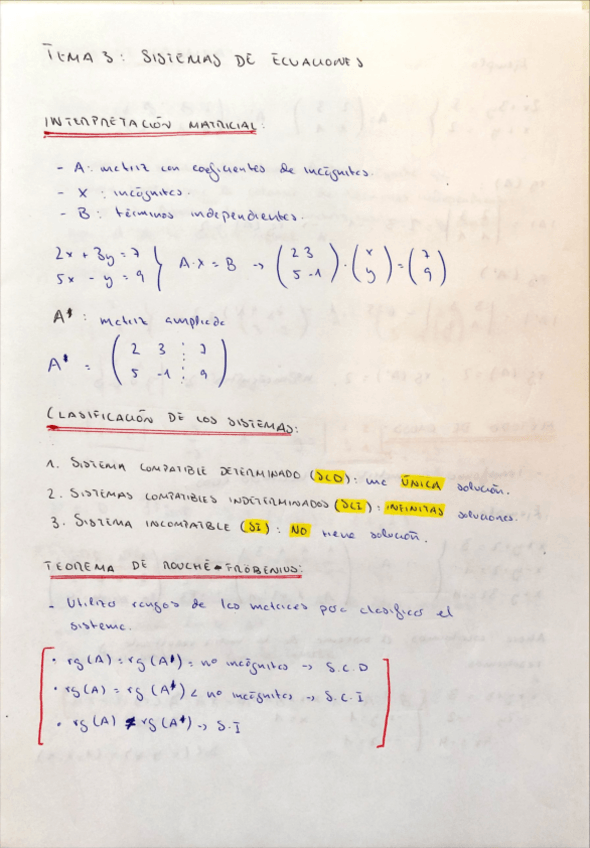 TEMA 3: SISTEMAS DE ECUACIONES
INTERPRETACIÓN MATRICIAL:
- A: matriz con coeficientes de incógnitas.
- X: incógnitas.
- B: términos independientes.
2x + 3y = 7
5x - y = 9 } A·X = B → (2 3 / 5 -1) · (x / y) = (7 / 9)
A*: matriz ampliada
A* = (2 3 ⋮ 7 / 5 -1 ⋮ 9)
CLASIFICACIÓN DE LOS SISTEMAS:
1. SISTEMA COMPATIBLE DETERMINADO (SCD): una ÚNICA solución.
2. SISTEMAS COMPATIBLES INDETERMINADOS (SCI): INFINITAS soluciones.
3. SISTEMA INCOMPATIBLE (SI): NO tiene solución.
TEOREMA DE ROUCHÉ-FRÖBENIUS:
- Utilizo rangos de las matrices para clasificar el
sistema.
· rg(A) = rg(A*) = no incógnitas → S.C.D
· rg(A) = rg(A*) < no incógnitas → S.C.I
· rg(A) ≠ rg(A*) → S.I